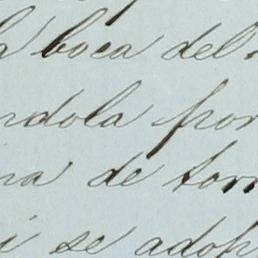 a boca del
ndola por
na de torn
i se adop